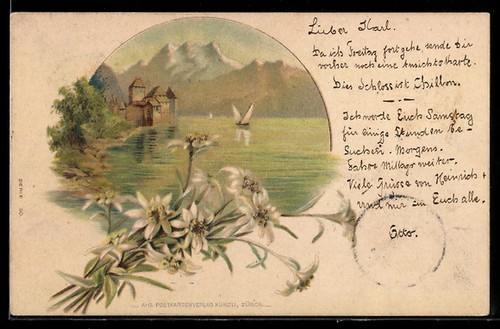 Lieber Karl.
Da ich Freitag fortgehe, sende Dir
vorher noch eine Ansichtskarte.
Dies Schloss ist Chillon.
Ich werde Euch Samstag
für einige Stunden be-
suchen. Morgens.
Fahre Mittags weiter.
Viele Grüsse von Heinrich +
und mir an Euch alle.
Otto.
SERIE
ANS. POSTKARTENVERLAG KÜNZLI, ZÜRICH.